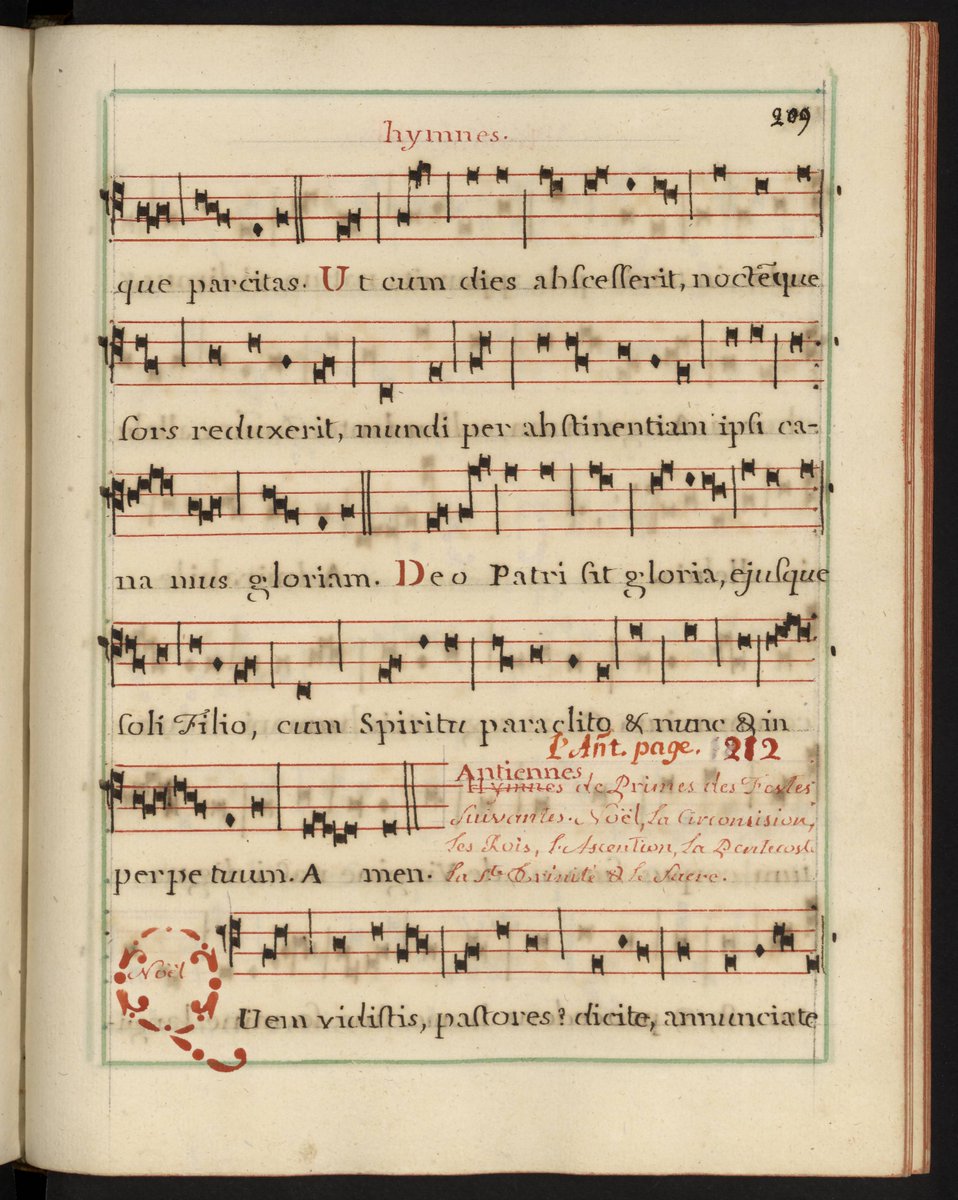 209
hymnes.
que parcitas. Ut cum dies abſceſſerit, noctēque
ſors reduxerit, mundi per abſtinentiam ipſi ca-
na mus gloriam. Deo Patri ſit gloria, ejuſque
ſoli Filio, cum Spiritu paraclito & nunc & in
l'Añt. page. 212
Antiennes
Hymnes de Primes des Festes
Suivantes. Noël, la Circoncision,
les Rois, l'Ascention, la Pentecoste
perpetuum. A men. la Ste Trinité & le Sacre.
Noël
QUem vidiſtis, paſtores? dicite, annunciate